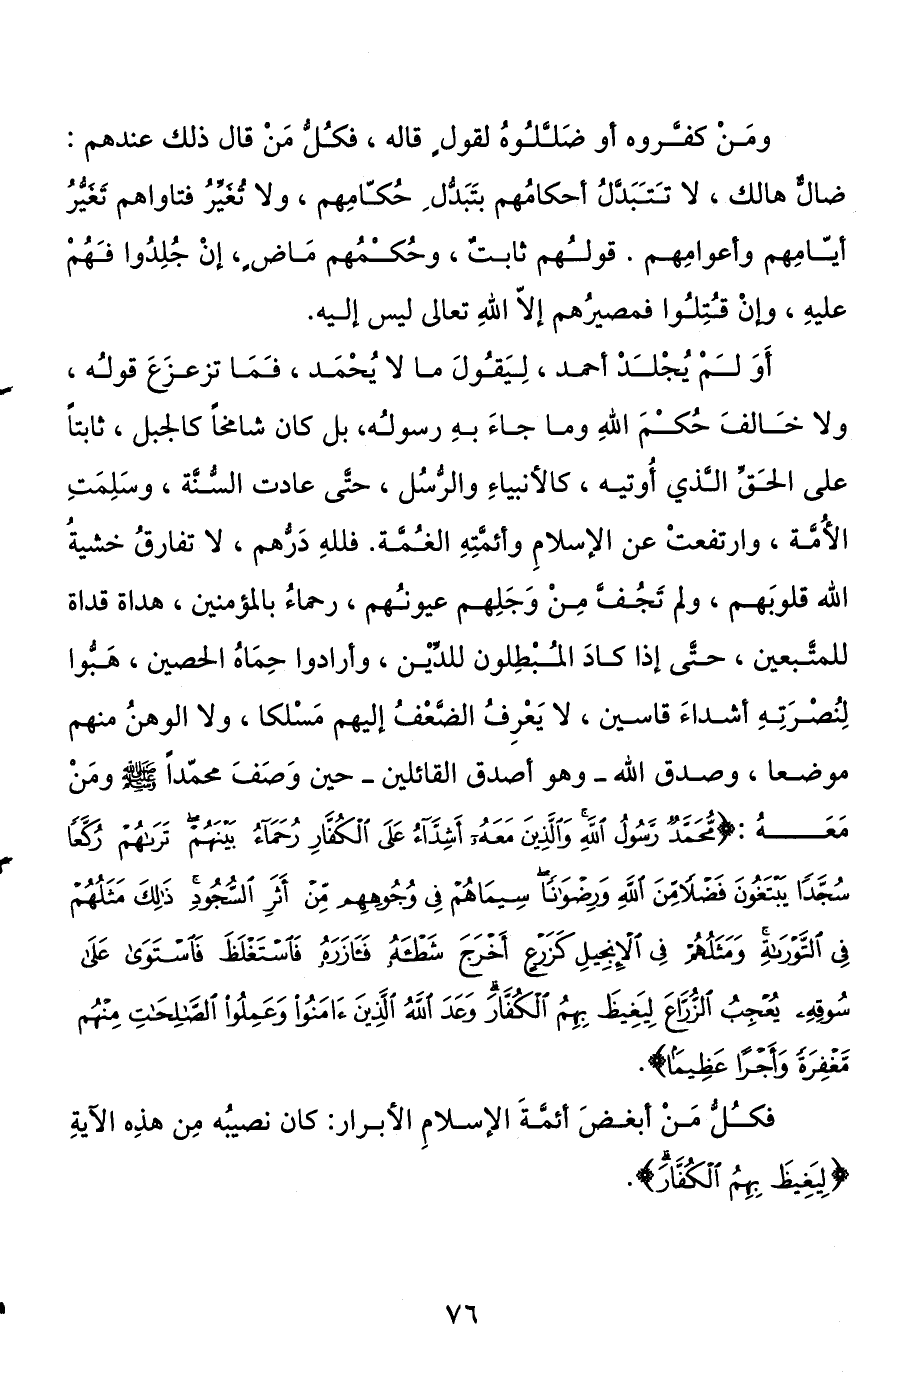 ومَنْ كفَّروه أو ضَلَّلُوهُ لقولٍ قاله ، فكلُّ مَنْ قال ذلك عندهم :
ضالٌّ هالك ، لا تَتَبَدَّلُ أحكامُهم بتَبَدُّلِ حُكّامِهم ، ولا تُغَيِّرُ فتاواهم تَغَيُّرُ
أيّامِهم وأعوامِهم . قولُهم ثابتٌ ، وحُكْمُهم مَاضٍ، إنْ جُلِدُوا فَهُمْ
عليهِ ، وإنْ قُتِلُوا فمصيرُهم إلاّ اللهِ تعالى ليس إليه.
أَوَ لَمْ يُجْلَدْ أحمد ، لِيَقُولَ ما لا يُحْمَد ، فَمَا تزعزَعَ قولُه ،
ولا خَالفَ حُكْمَ اللهِ وما جاءَ بهِ رسولُه، بل كان شامخاً كالجبل ، ثابتاً
على الحَقِّ الَّذي أُوتيه ، كالأنبياءِ والرُّسُل ، حتَّى عادت السُّنَّة ، وسَلِمَتِ
الأُمَّة ، وارتفعتْ عن الإسلامِ وأئمَّتِهِ الغُمَّة. فللهِ دَرُّهم ، لا تفارقُ خشيةُ
الله قلوبَهم ، ولم تَجُفَّ مِنْ وَجَلِهم عيونُهم ، رحماءُ بالمؤمنين ، هداة قداة
للمتَّبعين ، حتَّى إذا كادَ المُبْطِلون للدِّيْن ، وأرادوا حِمَاهُ الحصين ، هَبُّوا
لِنُصْرَتِهِ أشداءَ قاسين ، لا يَعْرِفُ الضَّعْفُ إليهم مَسْلكا ، ولا الوهنُ منهم
موضعا ، وصدق الله ـ وهو أصدق القائلين ـ حين وَصَفَ محمّداً ﷺ ومَنْ
مَعَهُ : ﴿مُّحَمَّدٌ رَّسُولُ ٱللَّهِۚ وَٱلَّذِينَ مَعَهُۥٓ أَشِدَّآءُ عَلَى ٱلْكُفَّارِ رُحَمَآءُ بَيْنَهُمْۖ تَرَىٰهُمْ رُكَّعًا
سُجَّدًا يَبْتَغُونَ فَضْلًا مِّنَ ٱللَّهِ وَرِضْوَٰنًاۖ سِيمَاهُمْ فِى وُجُوهِهِم مِّنْ أَثَرِ ٱلسُّجُودِۚ ذَٰلِكَ مَثَلُهُمْ
فِى ٱلتَّوْرَىٰةِۚ وَمَثَلُهُمْ فِى ٱلْإِنجِيلِ كَزَرْعٍ أَخْرَجَ شَطْـَٔهُۥ فَـَٔازَرَهُۥ فَٱسْتَغْلَظَ فَٱسْتَوَىٰ عَلَىٰ
سُوقِهِۦ يُعْجِبُ ٱلزُّرَّاعَ لِيَغِيظَ بِهِمُ ٱلْكُفَّارَۗ وَعَدَ ٱللَّهُ ٱلَّذِينَ ءَامَنُوا۟ وَعَمِلُوا۟ ٱلصَّٰلِحَٰتِ مِنْهُم
مَّغْفِرَةً وَأَجْرًا عَظِيمًۢا﴾.
فكلُّ مَنْ أبغضَ أئمَّةَ الإسلامِ الأبرار: كان نصيبُه مِن هذِه الآيةِ
﴿لِيَغِيظَ بِهِمُ ٱلْكُفَّارَۗ﴾.
٧٦